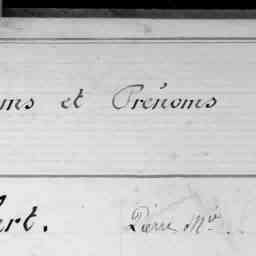 ms et Prénoms
ert. Pierre Mie